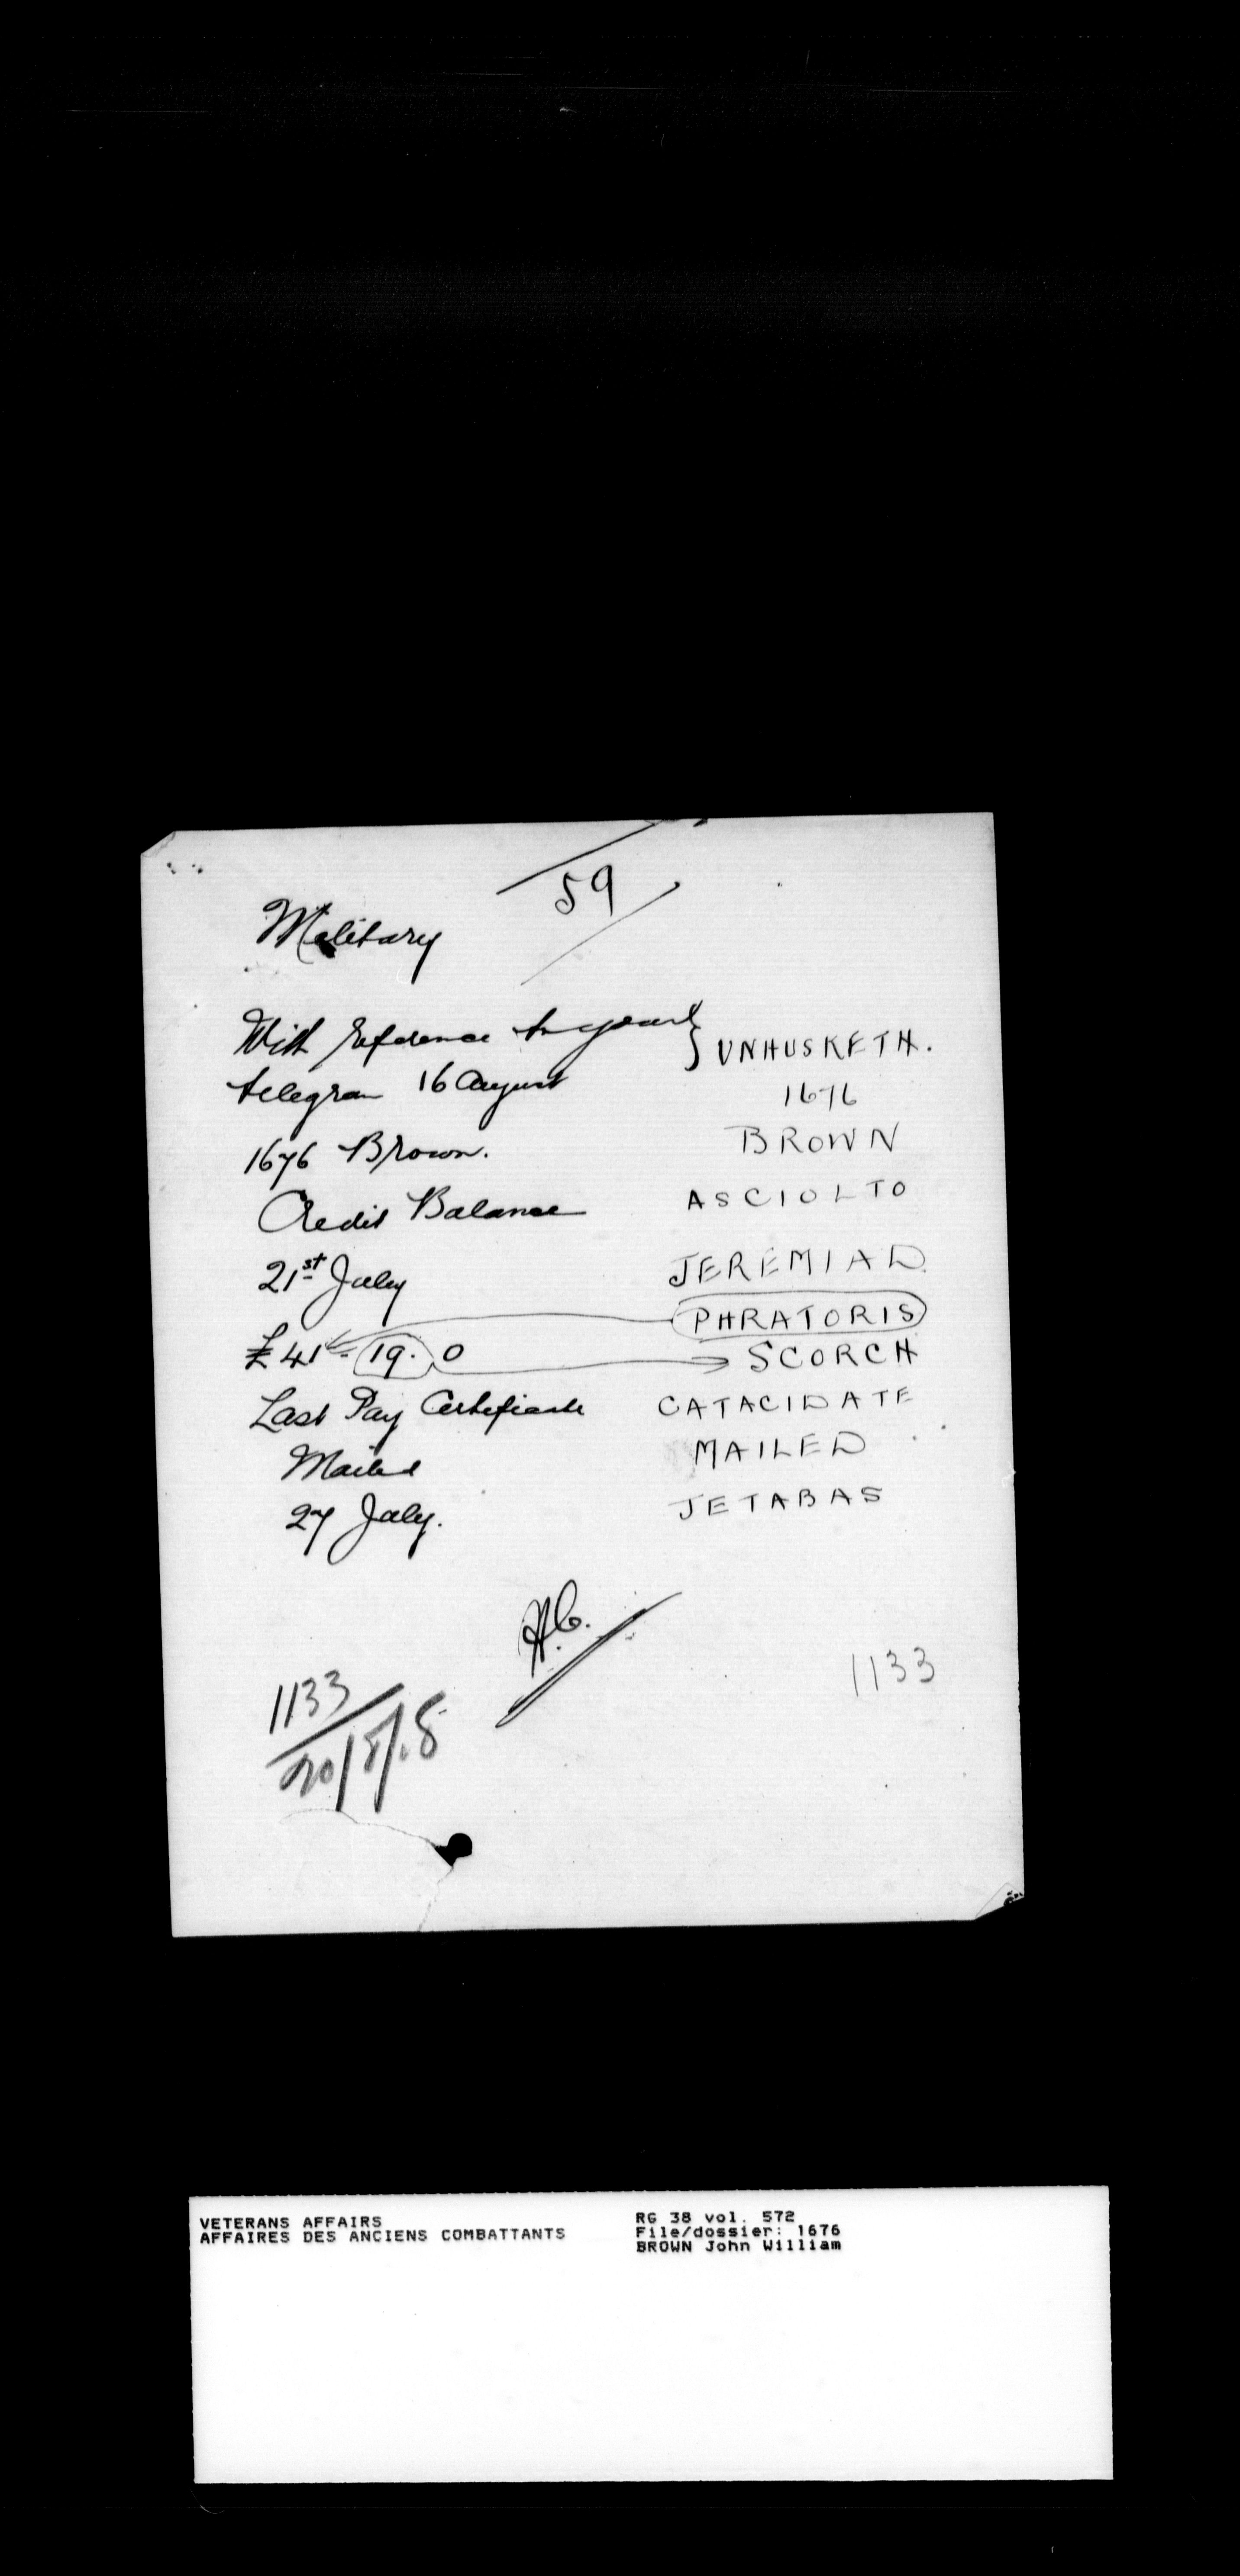 59
Military
With reference to your } UNHUSKETH.
telegram 16 August
1676
1676 Brown. BROWN
Credit Balance ASCIOLTO
21st July JEREMIAD.
PHRATORIS
£41 - 19. 0 SCORCH
Last Pay Certificate CATACIDATE
Mailed MAILED
27 July. JETABAS
H.C.
1133 1133
20/8/18
VETERANS AFFAIRS RG 38 vol. 572
AFFAIRES DES ANCIENS COMBATTANTS File/dossier: 1676
BROWN John William